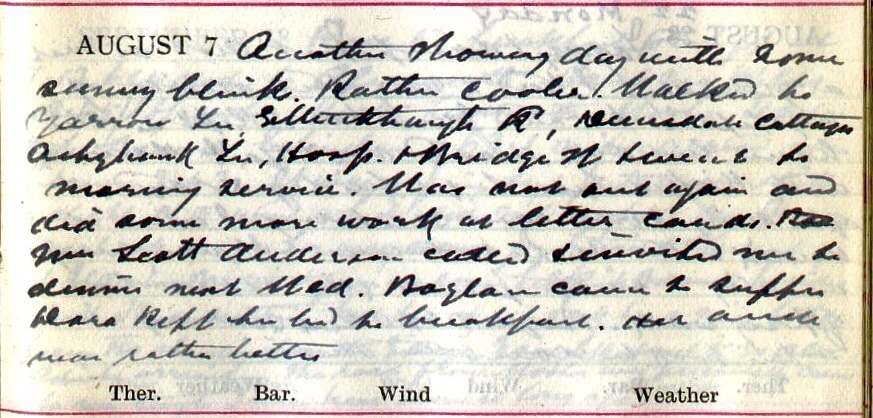 AUGUST 7 Another showery day with some
sunny blinks. Rather cooler. Walked to
Yarrow Ln, Ettrickhaugh Rd, Dunsdale Cottages
Ashybank Ln, Hosp. & Bridge St & went to
morning service. Was not out again and
did some more work at letter cards.
Mrs Scott Anderson called & invited me to
dinner next Wed. came to supper
Dora kept her bed to breakfast. Her
near rather better
Ther. Bar. Wind Weather